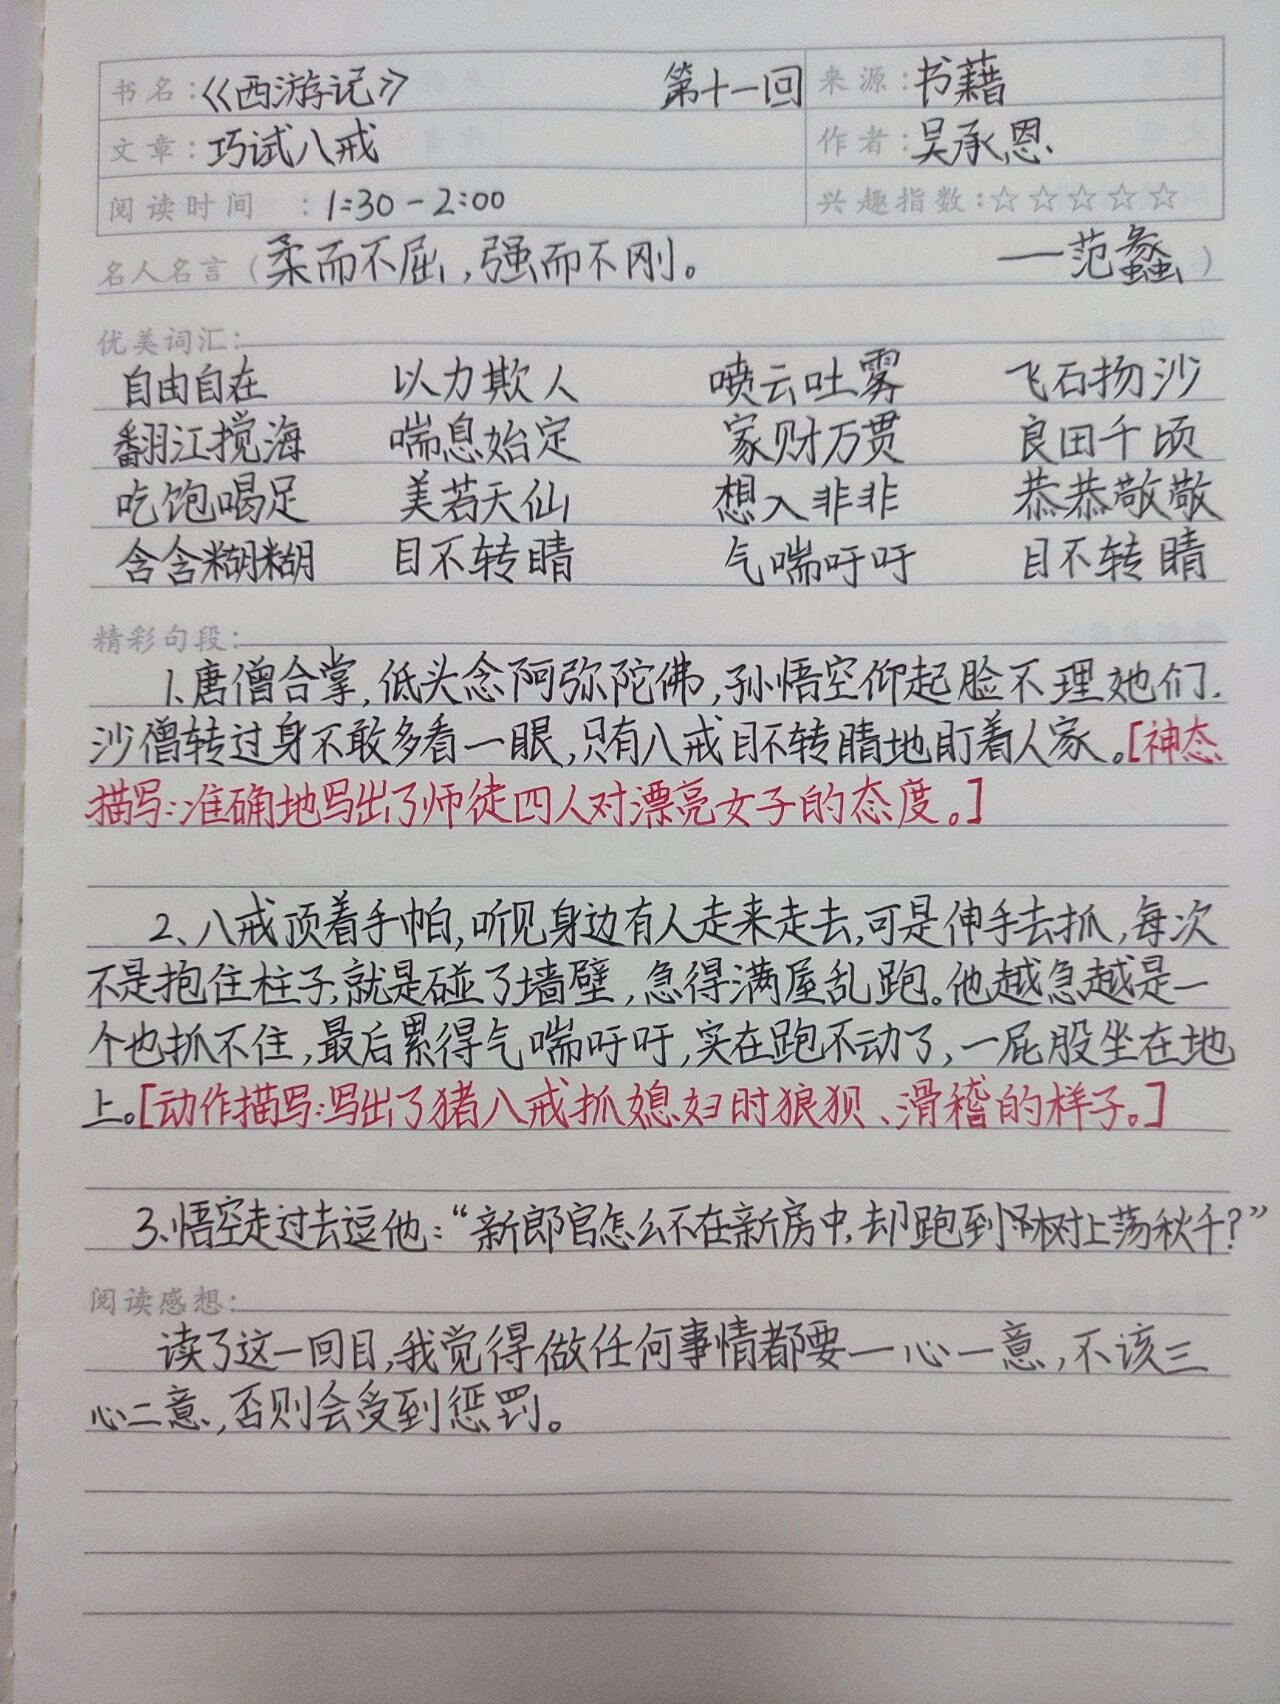 书名：《西游记》 第十一回 来源：书籍
文章：巧试八戒 作者：吴承恩
阅读时间：1:30-2:00 兴趣指数：☆☆☆☆☆
名人名言（柔而不屈，强而不刚。 ——范蠡）
优美词汇：
自由自在 以力欺人 喷云吐雾 飞石扬沙
翻江搅海 喘息始定 家财万贯 良田千顷
吃饱喝足 美若天仙 想入非非 恭恭敬敬
含含糊糊 目不转睛 气喘吁吁 目不转睛
精彩句段：
1.唐僧合掌，低头念阿弥陀佛，孙悟空仰起脸不理她们，
沙僧转过身不敢多看一眼，只有八戒目不转睛地盯着人家。[神态
描写：准确地写出了师徒四人对漂亮女子的态度。]
2、八戒顶着手帕，听见身边有人走来走去，可是伸手去抓，每次
不是抱住柱子，就是碰了墙壁，急得满屋乱跑。他越急越是一
个也抓不住，最后累得气喘吁吁，实在跑不动了，一屁股坐在地
上。[动作描写：写出了猪八戒抓媳妇时狼狈、滑稽的样子。]
3、悟空走过去逗他：“新郎官怎么不在新房中，却跑到树上荡秋千？”
阅读感想：
读了这一回目，我觉得做任何事情都要一心一意，不该三
心二意，否则会受到惩罚。